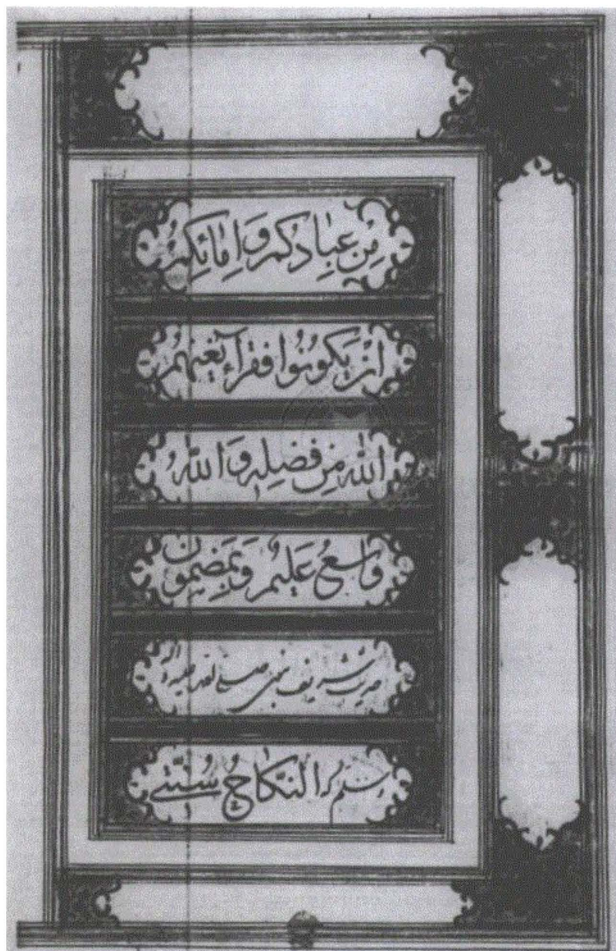 مِنْ عِبٰادِكُمْ وَ اِمٰائِكُمْ
اِنْ يَكُونُوا فُقَرٰآءَ يُغْنِهِمُ
اللّٰهُ مِنْ فَضْلِهِ وَ اللّٰهُ
وٰاسِعٌ عَلِيمٌ وَ بِمَضْمُونِ
حدیث شریف نبی صلی الله علیه و آله
و سلم که النِّكٰاحُ سُنَّتِي